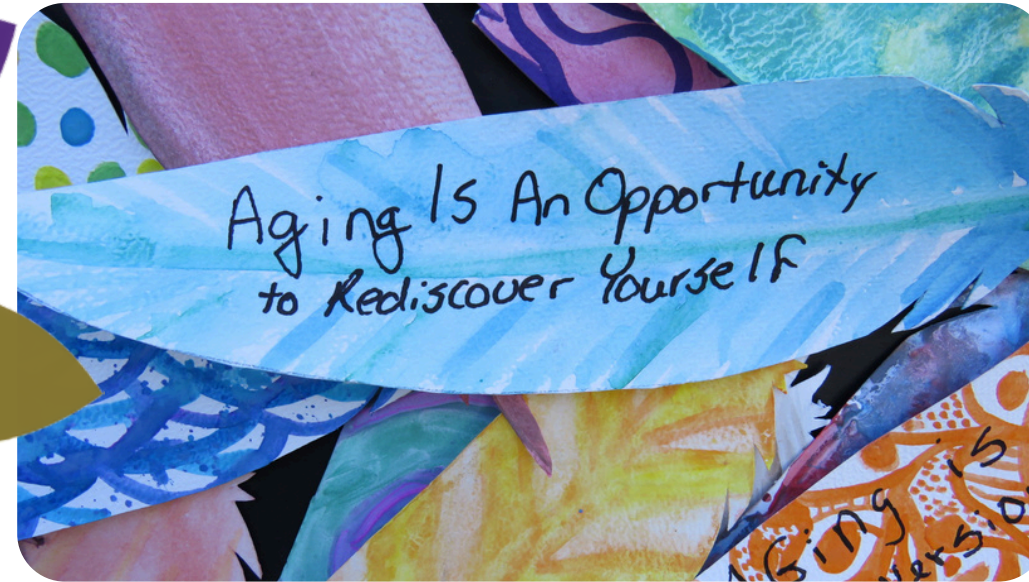 Aging Is An Opportunity
to Rediscover Yourself
is